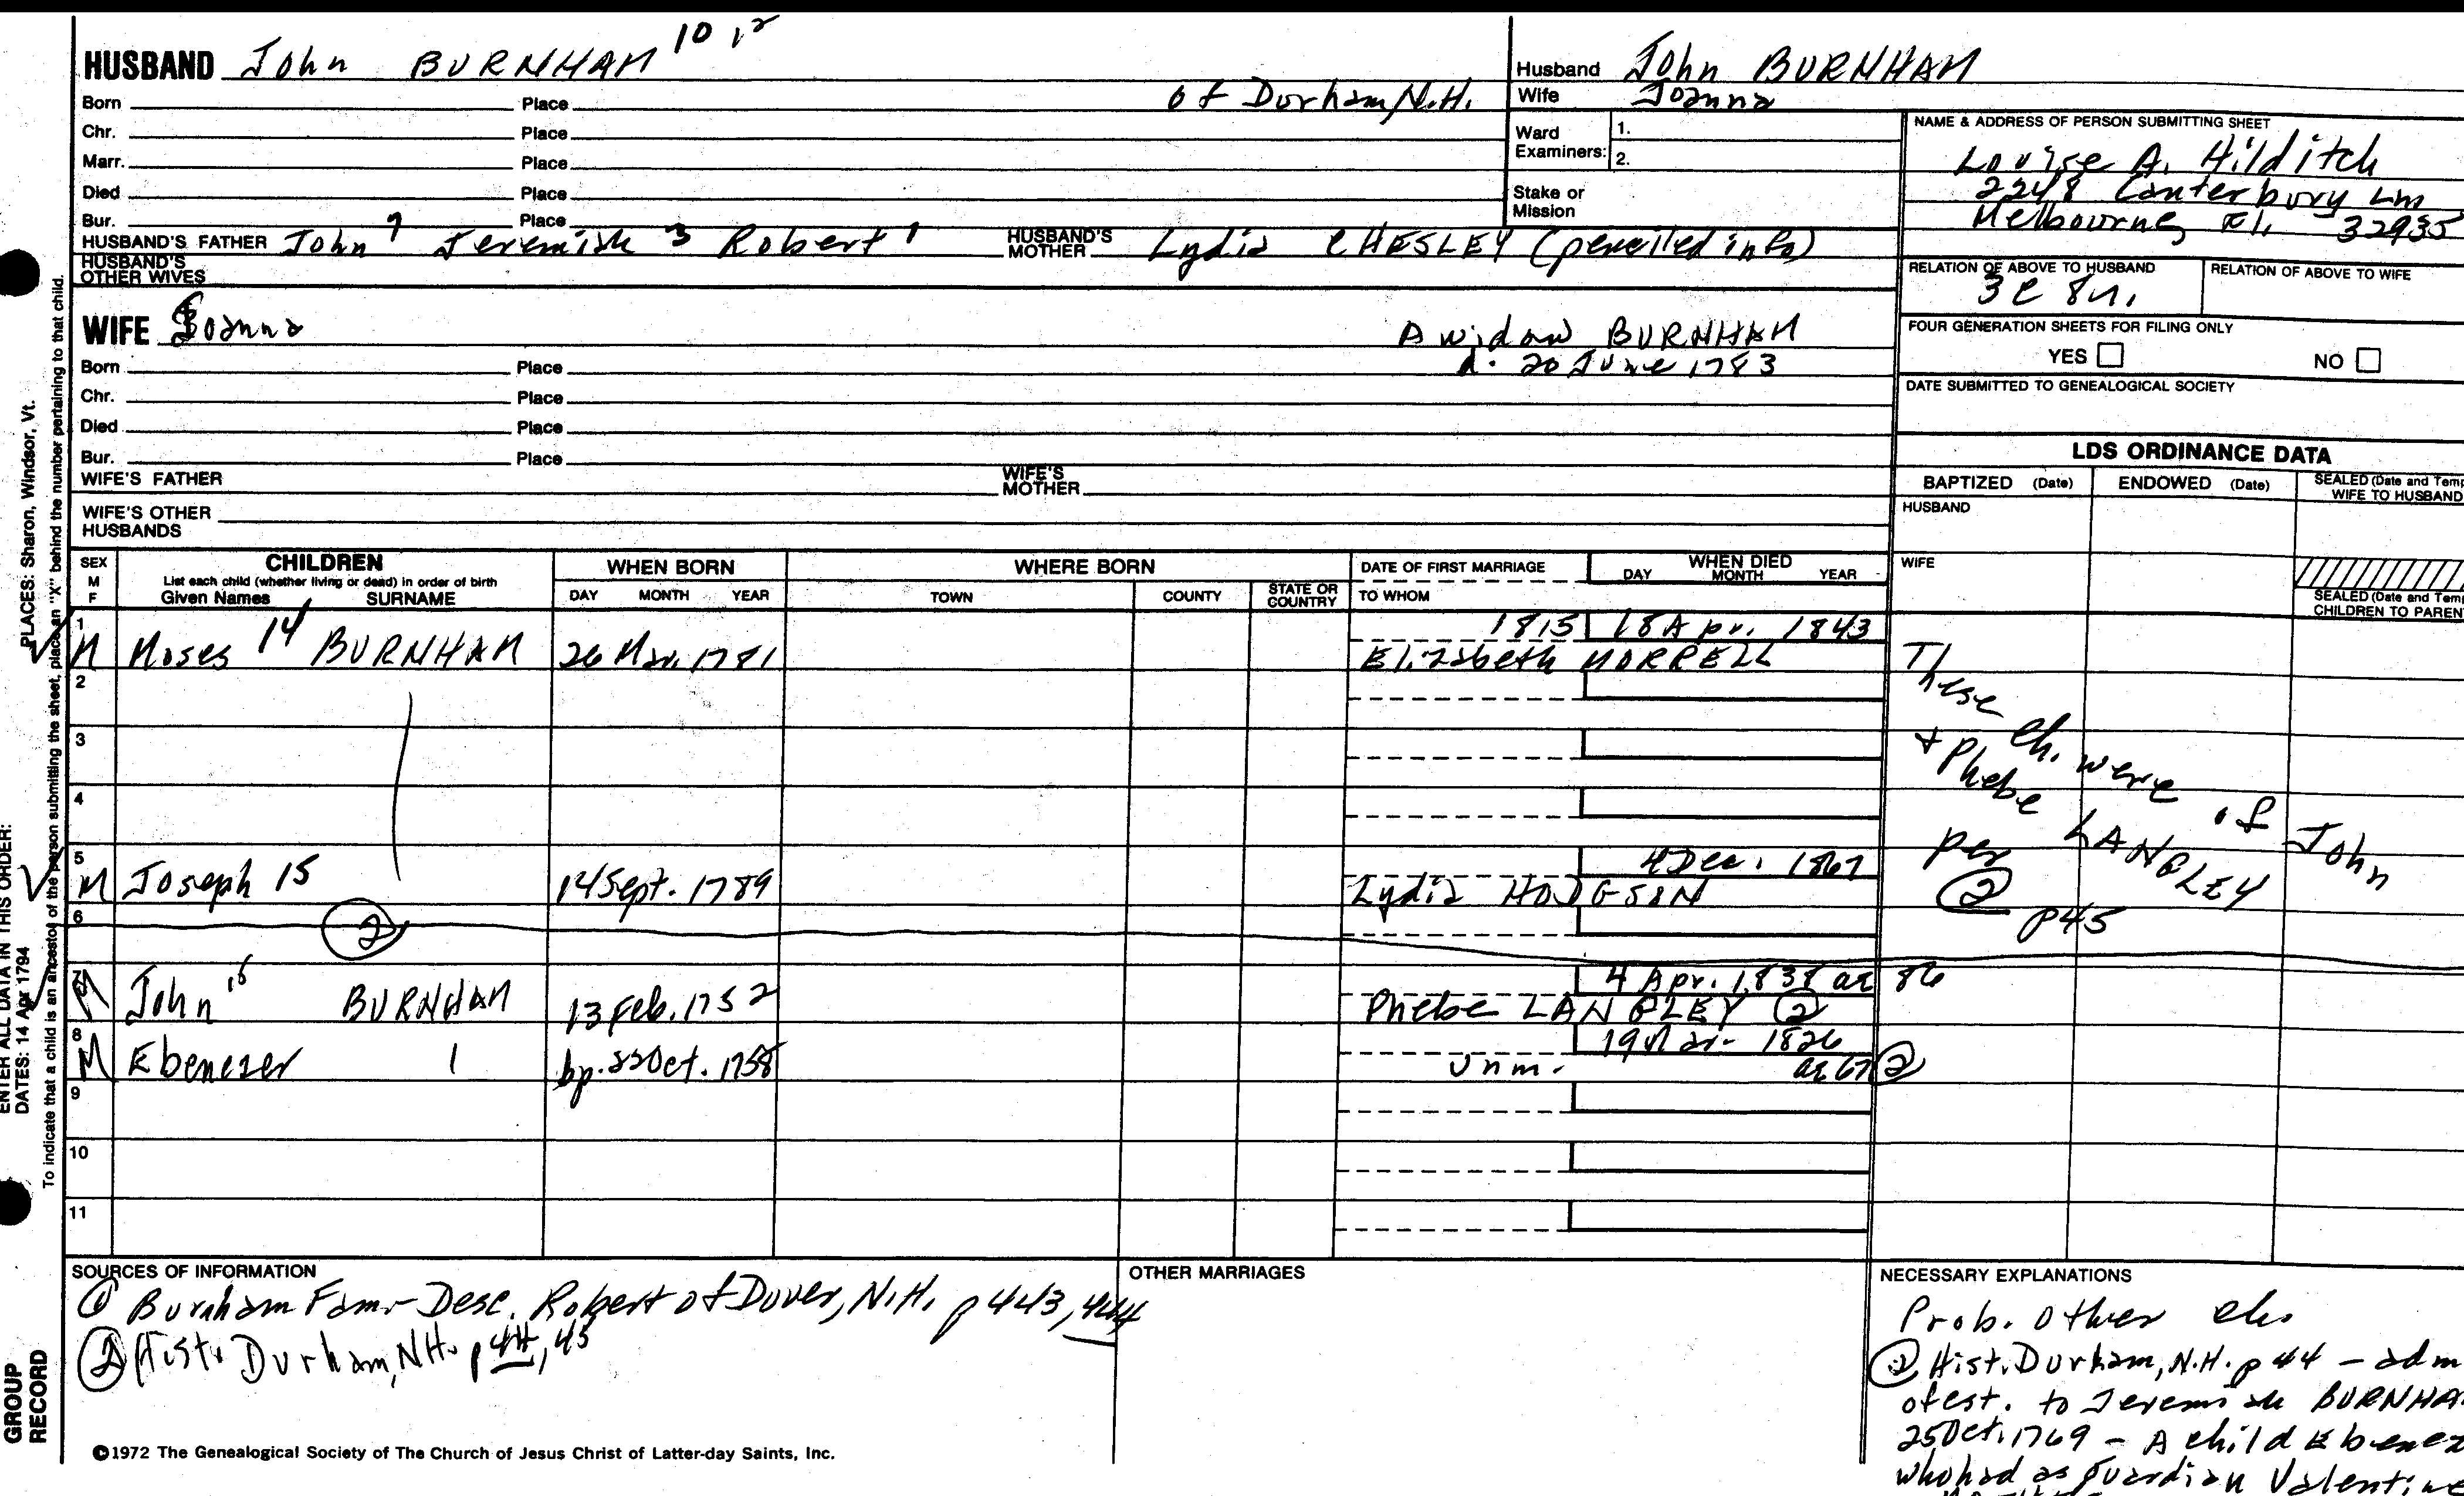 HUSBAND John BURNHAM 10 12
Born Place of Durham, N.H.
Chr. Place
Marr. Place
Died Place
Bur. Place
HUSBAND'S FATHER John 7 Jeremiah 3 Robert 1 HUSBAND'S MOTHER Lydia CHESLEY (penciled info)
HUSBAND'S OTHER WIVES
WIFE Joanna A widow BURNHAM
d. 20 June 1783
Born Place
Chr. Place
Died Place
Bur. Place
WIFE'S FATHER WIFE'S MOTHER
WIFE'S OTHER HUSBANDS
Husband John BURNHAM
Wife Joanna
Ward Examiners: 1.
2.
Stake or Mission
NAME & ADDRESS OF PERSON SUBMITTING SHEET
Louise A. Hilditch
2248 Canterbury Ln
Melbourne, Fl. 32935
RELATION OF ABOVE TO HUSBAND RELATION OF ABOVE TO WIFE
3C 8r.
FOUR GENERATION SHEETS FOR FILING ONLY
YES NO
DATE SUBMITTED TO GENEALOGICAL SOCIETY
LDS ORDINANCE DATA
BAPTIZED (Date) ENDOWED (Date) SEALED (Date and Temp
WIFE TO HUSBAND
HUSBAND
WIFE
SEALED (Date and Temp
CHILDREN TO PAREN
SEX M F CHILDREN WHEN BORN WHERE BORN DATE OF FIRST MARRIAGE WHEN DIED
List each child (whether living or dead) in order of birth
Given Names SURNAME DAY MONTH YEAR TOWN COUNTY STATE OR COUNTRY TO WHOM DAY MONTH YEAR
1 1815 18 Apr. 1843
M Moses 14 BURNHAM 26 Mar. 1781 Elizabeth MORRELL
2
3
4
5 4 Dec. 1867
M Joseph 15 14 Sept. 1789 Lydia HODGSON
6 2
7 4 Apr. 1838 ae 86
M John 15 BURNHAM 13 Feb. 1752 Phebe LANGLEY 2
8 19 Mar. 1826
M Ebenezer bp. 22 Oct. 1758 unm. ae 67 2
9
10
11
These ch. were of John
+ Phebe LANGLEY
per 2 p45
SOURCES OF INFORMATION
1 Burnham Fam - Desc. Robert of Dover, N.H. p 443, 444
2 Hist. Durham, NH. p 44, 45
OTHER MARRIAGES
NECESSARY EXPLANATIONS
Prob. other ch.
2 Hist. Durham, N.H. p 44 - adm
of est. to Jeremiah BURNHA
25 Oct. 1769 - A child Ebenez
who had as guardian Valentine
©1972 The Genealogical Society of The Church of Jesus Christ of Latter-day Saints, Inc.
PLACES: Sharon, Windsor, Vt.
ENTER ALL DATA IN THIS ORDER:
DATES: 14 Apr 1794
To indicate that a child is an ancestor of the person submitting the sheet, place an "X" behind the number pertaining to that child.
GROUP
RECORD